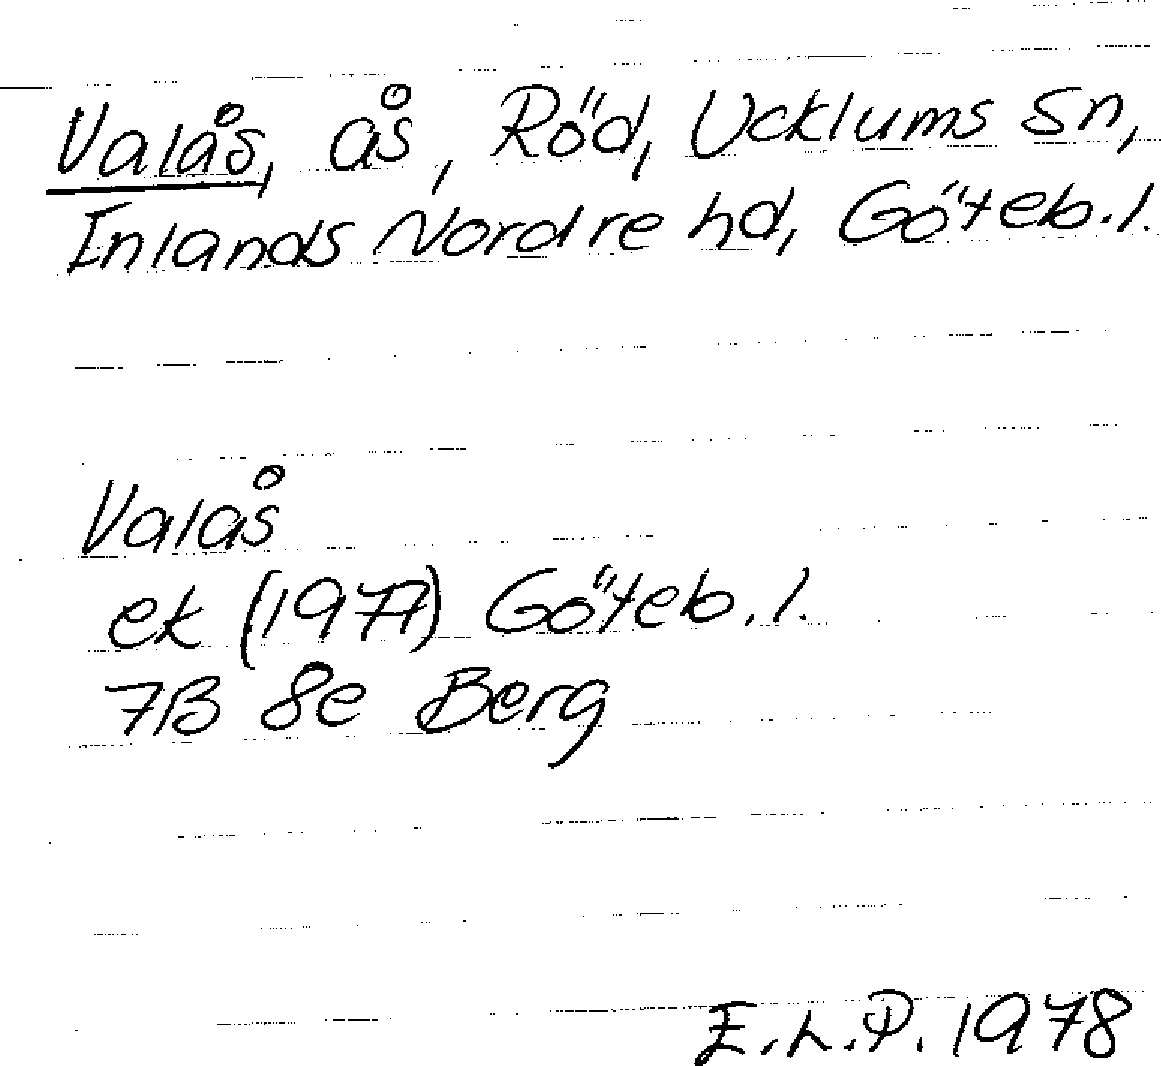 Valås, ås, Röd, Ucklums sn,
Inlands Nordre hd, Göteb.l.
Valås
ek (1977) Göteb.l.
7B 8e Berg
E.L.P. 1978